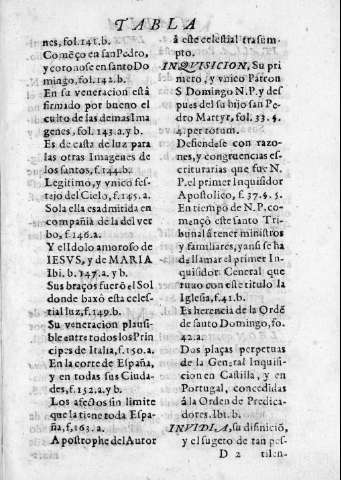 TABLA
nes, fol. 141. b.
Comẽço en san Pedro,
y corono se en santo Do
mingo, fol. 142. b.
En su veneracion està
firmado por bueno el
culto de las demas Ima
genes, fol. 143. a. y b.
Es de casta de luz para
las otras Imagenes de
los santos, f. 144. b.
Legitimo, y vnico fes-
tejo del Cielo, f. 145. a.
Sola ella es admitida en
compañia de la del ver
bo, f. 146. a.
Y el Idolo amoroso de
IESVS, y de MARIA
Ibi. b. 147. a. y b.
Sus braços fuerõ el Sol
donde baxò esta celes-
tial luz, f. 149. b.
Su veneracion plausi-
ble entre todos los Prin
cipes de Italia, f. 150. a.
En la corte de España,
y en todas sus Ciuda-
des, f. 152. a. y b.
Los afectos sin limite
que la tiene toda Espa-
ña, f. 163. a.
Apostrophe del Autor
à este celestial trasem-
pto.
INQVISICION, Su pri
mero, y vnico Patron
S Domingo N. P. y des
pues del su hijo san Pe
dro Martyr, fol. 33. §.
4. per totum.
Defiendese con razo-
nes, y congruencias es-
criturarias que fue N.
P. el primer Inquisidor
Apostolico, f. 37. §. 5.
En tiempo de N. P. co-
mençò este santo Tri-
bunal à tener ministros
y familiares, y ansi se ha
de llamar el primer In-
quisidor General que
tuuo con este titulo la
Iglesia, f. 41. b.
Es herencia de la Ordẽ
de santo Domingo, fo.
42. a.
Dos plaças perpetuas
de la General Inquisi-
cion en Castilla, y en
Portugal, concedidas
à la Orden de Predica-
dores. Ibt. b.
INVIDIA, su difiniciõ,
y el sugeto de tan pes-
D 2 tilen-